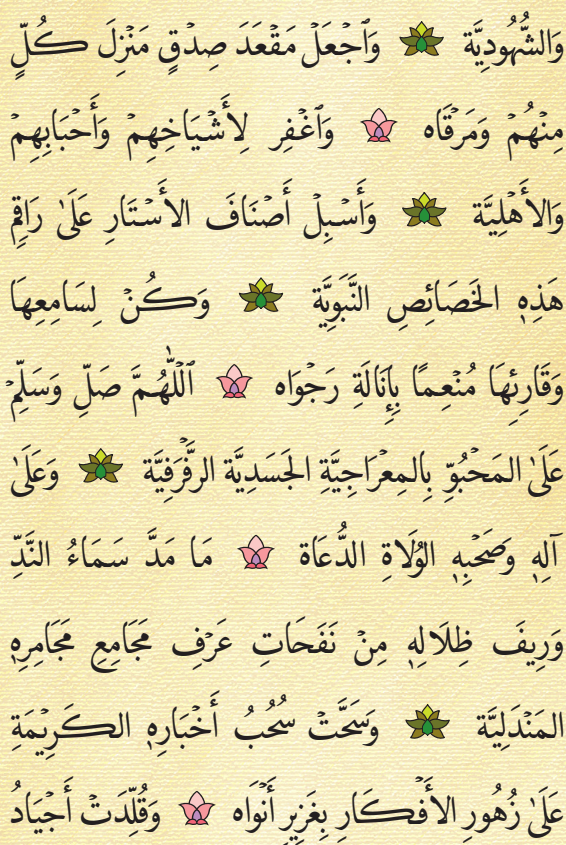 وَالشُّهُودِيَّة وَاجْعَلْ مَقْعَدَ صِدْقٍ مَنْزِلَ كُلٍّ
مِنْهُمْ وَمَرْقَاه وَاغْفِر لِأَشْيَاخِهِمْ وَأَحْبَابِهِمْ
وَالأَهْلِيَّة وَأَسْبِلْ أَصْنَافَ الأَسْتَارِ عَلَىٰ رَاقِمِ
هَذِهِ الخَصَائِصِ النَّبَوِيَّة وَكُنْ لِسَامِعِهَا
وَقَارِئِهَا مُنْعِمًا بِإِنَالَةِ رَجْوَاه اَللّٰهُمَّ صَلِّ وَسَلِّمْ
عَلَىٰ المَحْبُوِّ بِالمِعْرَاجِيَّةِ الجَسَدِيَّة الرَّفْرَفِيَّة وَعَلَىٰ
آلِهِ وَصَحْبِهِ الوُلَاةِ الدُّعَاة مَا مَدَّ سَمَاءُ النَّدِّ
وَرِيفَ ظِلَالِهِ مِنْ نَفَحَاتِ عَرْفِ مَجَامِعِ مَجَامِرِهِ
المَنْدَلِيَّة وَسَحَّتْ سُحُبُ أَخْبَارِهِ الكَرِيْمَةِ
عَلَىٰ زُهُورِ الأَفْكَارِ بِغَزِيرِ أَنْوَاه وَقُلِّدَتْ أَجْيَادُ